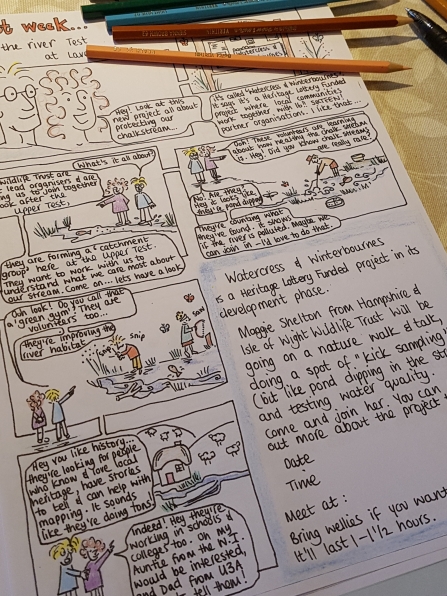 st week...
the river Test
at Lav
Hey! Look at this
new project all about
protecting our
chalkstream...
It's called 'Watercress & Winterbournes'
& says it's a Heritage Lottery Funded
project where local communities
work together with 16! different
partner organisations. I like that...
What's it all about?
Wildlife Trust are
lead organisers & are
us to join together
look after the
Upper Test.
Ooh! These volunteers are learning
about how healthy the chalk stream
is. Hey! Did you know chalk streams
are really rare?
No! Are they?
Hey it looks like
they're pond dipping
They're counting what
they've found. it shows
if the river's polluted. Maybe we
can join in - I'd love to do that...
they are forming a 'catchment
group' here at the Upper Test.
They want to work with us to
understand what we care most about
our stream. Come on... lets have a look
Ooh look! Do you call that
a 'green gym'? They are
volunteers too...
they're improving the
river habitat
Snip
Saw
Hey you like history...
they're looking for people
who know & love local
heritage, have stories
to tell & can help with
mapping. It sounds
like they're doing tons!
Indeed! Hey they're
working in schools &
colleges too. Oh my
Auntie from the W.I.
would be interested,
and Dad from U3A
tell them!
Watercress & Winterbournes
is a Heritage Lottery Funded project in its
development phase.
Maggie Shelton from Hampshire &
Isle of Wight Wildlife Trust will be
going on a nature walk & talk
doing a spot of "kick sampling"
(bit like pond dipping in the
and testing water quality.
Come and join her. You can
out more about the project
Date
Time
Meet at:
Bring wellies if you want
It'll last 1-1½ hours.